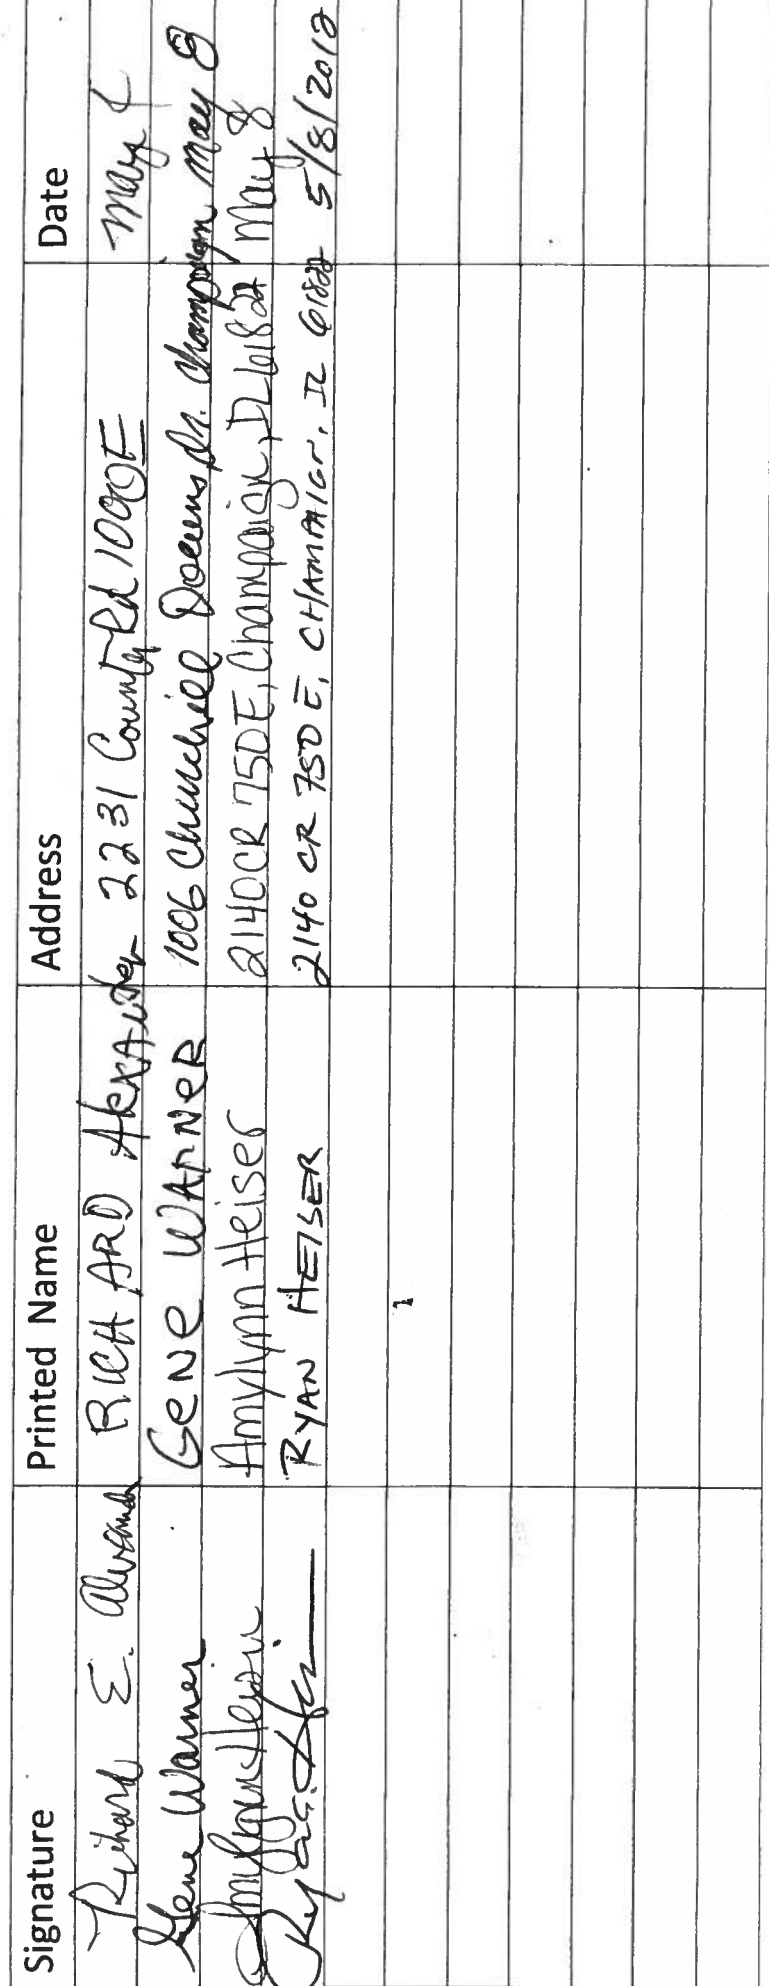 Signature Printed Name Address Date
Richard E. Alexander RICHARD Alexander 2231 County Rd 1000E May
Gene Warner GENE WARNER 1006 Churchill Downs Dr. Champaign May 8
Amylynn Heiser Amylynn Heiser 2140 CR 750 E, Champaign, IL 61822 May 8
Ryan Heiser RYAN HEISER 2140 CR 750 E, CHAMPAIGN, IL 61822 5/8/2012